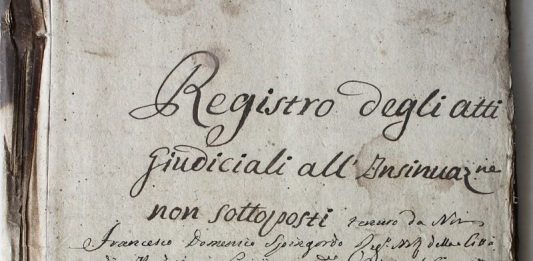 Registro degli atti
Giudiciali all'Insinuazne
non sottoposti tenuto da Noi
Francesco Domenico Spingardo Reg.º della Città